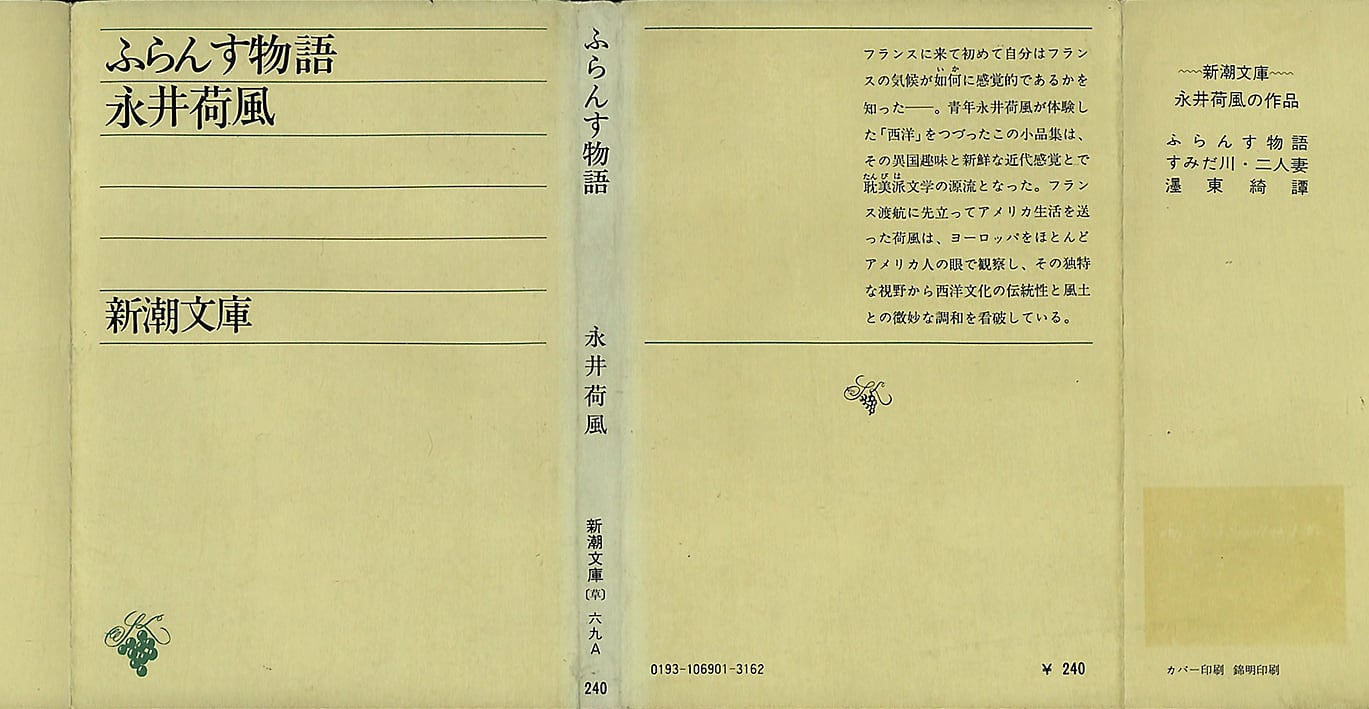 ふらんす物語
永井荷風
新潮文庫
ふらんす物語
永井荷風
新潮文庫
〔草〕
六九A
240
フランスに来て初めて自分はフラン
スの気候が如何に感覚的であるかを
知った――。青年永井荷風が体験し
た「西洋」をつづったこの小品集は、
その異国趣味と新鮮な近代感覚とで
耽美派文学の源流となった。フラン
ス渡航に先立ってアメリカ生活を送
った荷風は、ヨーロッパをほとんど
アメリカ人の眼で観察し、その独特
な視野から西洋文化の伝統性と風土
との微妙な調和を看破している。
0193-106901-3162
¥ 240
新潮文庫
永井荷風の作品
ふらんす物語
すみだ川・二人妻
濹東綺譚
カバー印刷 錦明印刷